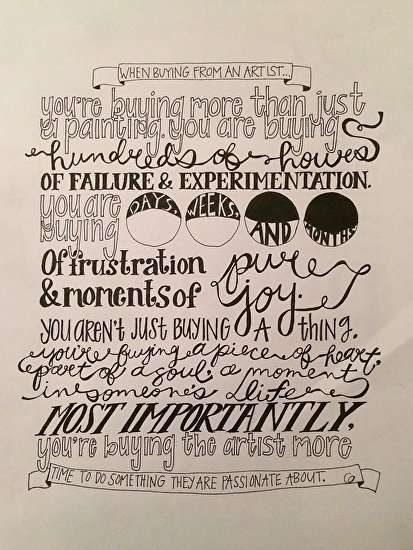 WHEN BUYING FROM AN ARTIST...
you're buying more than just
a painting. you are buying
hundreds of hours
OF FAILURE & EXPERIMENTATION.
you are
buying
DAYS, WEEKS, AND MONTHS
Of frustration
& moments of
pure
joy.
YOU AREN'T JUST BUYING A THING.
you're buying a piece of heart,
part of a soul; a moment
in someone's life
MOST IMPORTANTLY,
you're buying the artist more
TIME TO DO SOMETHING THEY ARE PASSIONATE ABOUT.